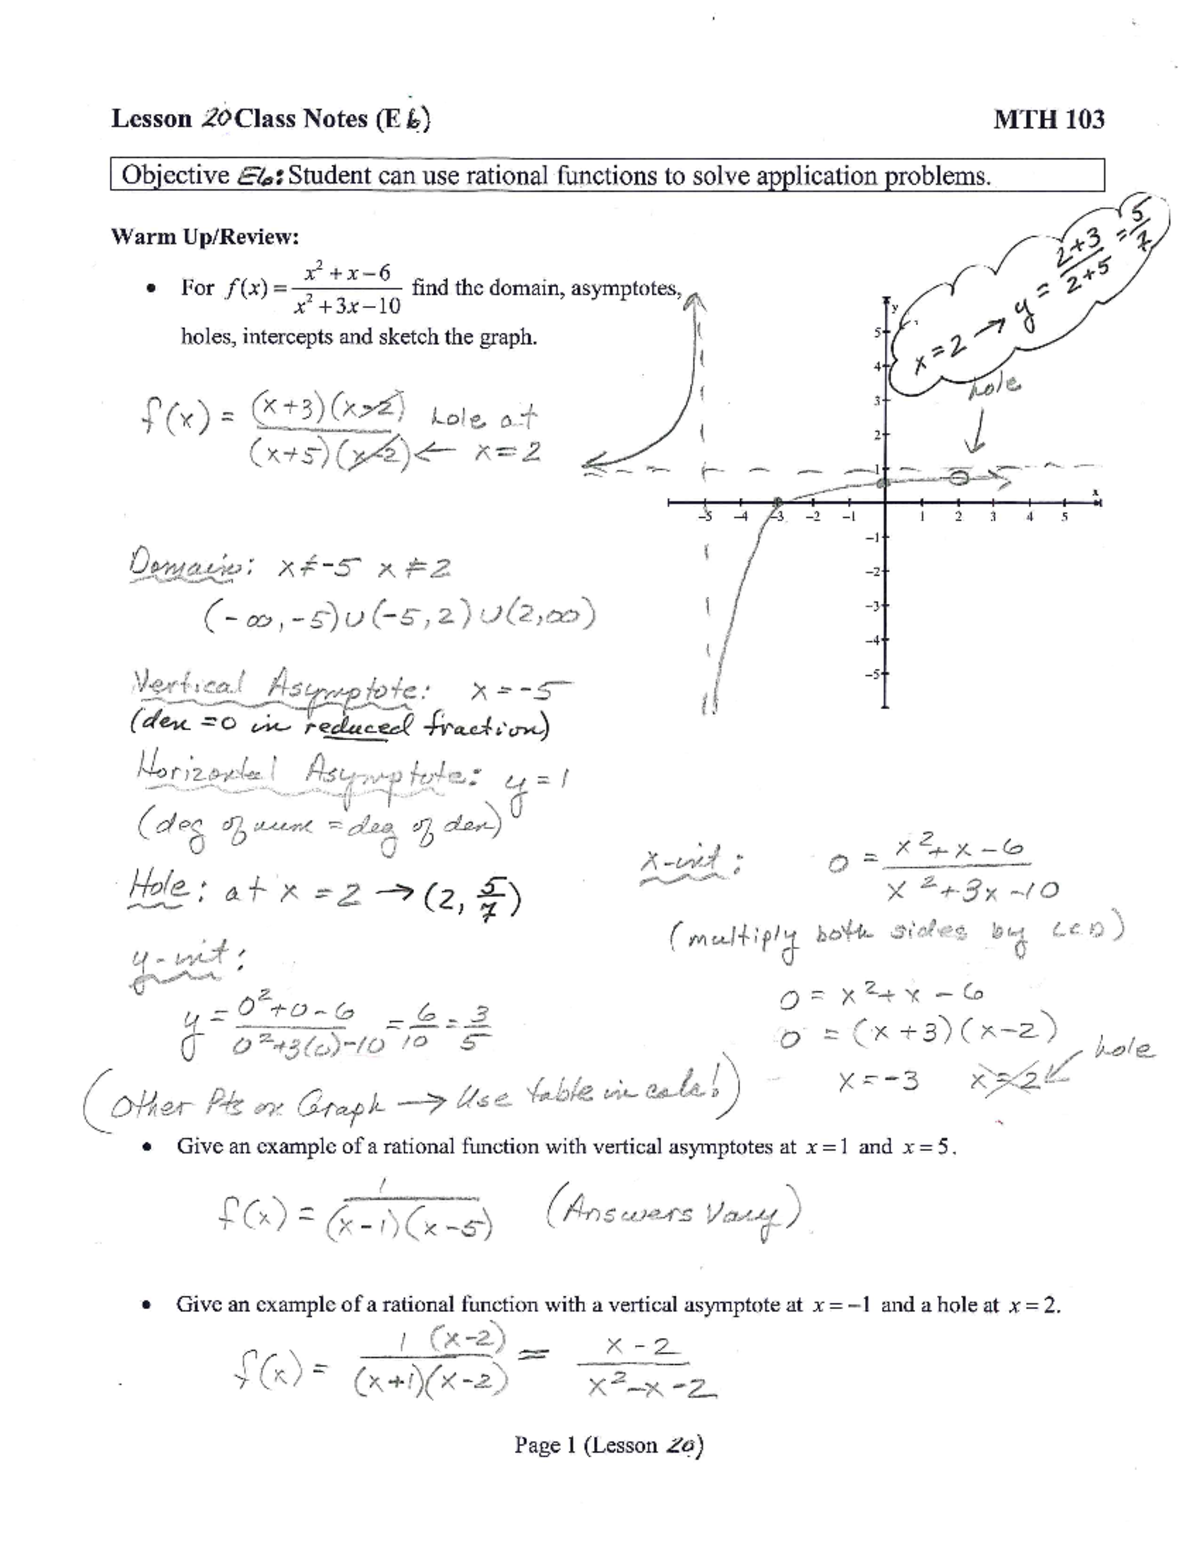 Lesson 20 Class Notes (E 6) MTH 103
Objective E6: Student can use rational functions to solve application problems.
Warm Up/Review:
• For f(x) = (x² + x − 6)/(x² + 3x − 10) find the domain, asymptotes,
holes, intercepts and sketch the graph.
x = 2 → y = (2+3)/(2+5) = 5/7
hole
y
5
4
3
2
1
x
−5 −4 −3 −2 −1 1 2 3 4 5
−1
−2
−3
−4
−5
f(x) = (x+3)(x-2)/(x+5)(x-2) ← hole at x = 2
Domain: x ≠ -5 x ≠ 2
(-∞, -5) ∪ (-5, 2) ∪ (2, ∞)
Vertical Asymptote: x = -5
(den = 0 in reduced fraction)
Horizontal Asymptote: y = 1
(deg of num = deg of den)
Hole: at x = 2 → (2, 5/7)
y-int:
y = (0²+0-6)/(0²+3(0)-10) = 6/10 = 3/5
x-int: 0 = (x²+x-6)/(x²+3x-10)
(multiply both sides by LCD)
0 = x²+x-6
0 = (x+3)(x-2)
x = -3 x = 2 ← hole
(Other Pts on Graph → Use table in calc!)
• Give an example of a rational function with vertical asymptotes at x = 1 and x = 5.
f(x) = 1/(x-1)(x-5) (Answers Vary)
• Give an example of a rational function with a vertical asymptote at x = −1 and a hole at x = 2.
f(x) = 1(x-2)/(x+1)(x-2) = (x-2)/(x²-x-2)
Page 1 (Lesson 20)